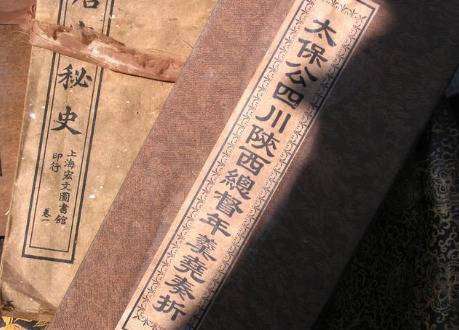 太保公四川陝西總督年羹堯奏折
秘史
上海宏文圖書館
印行
卷一